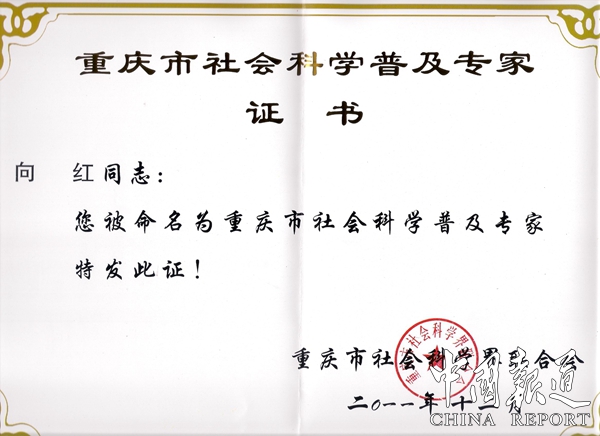 重庆市社会科学普及专家
证 书
向 红同志：
您被命名为重庆市社会科学普及专家
特发此证！
重庆市社会科学界联合会
二0一一年十二月
中国报道
CHINA REPORT